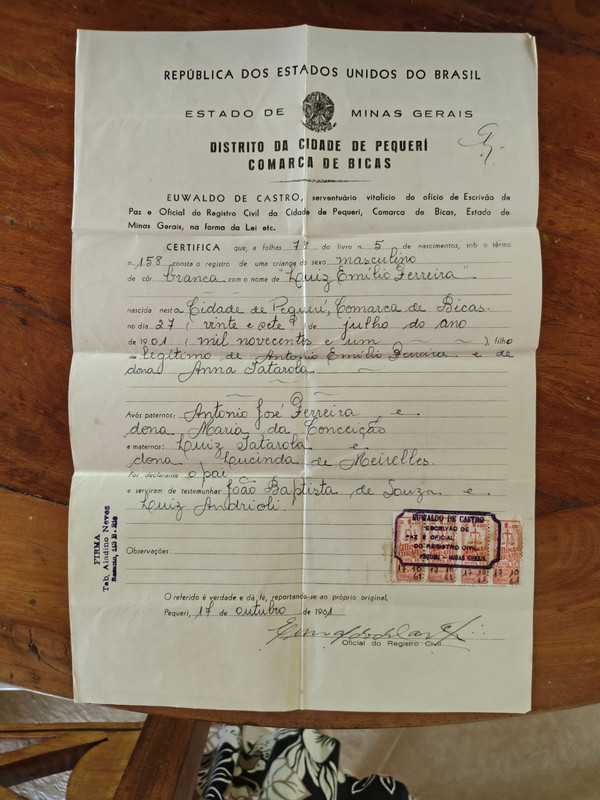 REPÚBLICA DOS ESTADOS UNIDOS DO BRASIL
ESTADO DE MINAS GERAIS
DISTRITO DA CIDADE DE PEQUERÍ
COMARCA DE BICAS
EUWALDO DE CASTRO, serventuário vitalício do ofício de Escrivão de
Paz e Oficial do Registro Civil da Cidade de Pequeri, Comarca de Bicas, Estado de
Minas Gerais, na forma da Lei etc.
CERTIFICA que, a folhas 78 do livro n 5 de nascimentos, sob o têrmo
n. 158 consta o registro de uma criança do sexo masculino
de côr branca com o nome de "Luiz Emílio Ferreira"
nascida nesta Cidade de Pequerí, Comarca de Bicas.
no dia 27 ( vinte e sete ) de julho do ano
de 1901 ( mil novecentos e um ), filho
legítimo de Antonio Emílio Ferreira e de
dona Anna Tatarola
Avós paternos: Antonio José Ferreira e
dona Maria da Conceição
e maternos: Luiz Tatarola e
dona Lucinda de Meirelles.
Foi declarante o pai
e serviram de testemunhas João Baptista de Souza e
Luiz Andrioli.
Observações:
O referido é verdade e dá fé, reportando-se ao próprio original.
Pequeri, 17 de outubro de 1961
Oficial do Registro Civil
FIRMA
Tab. Aladino Neves
EUWALDO DE CASTRO
ESCRIVÃO DE
PAZ E OFICIAL
DO REGISTRO CIVIL
PEQUERI - MINAS GERAIS
17 10 17 10 17 10 17 10
61 61 61 61